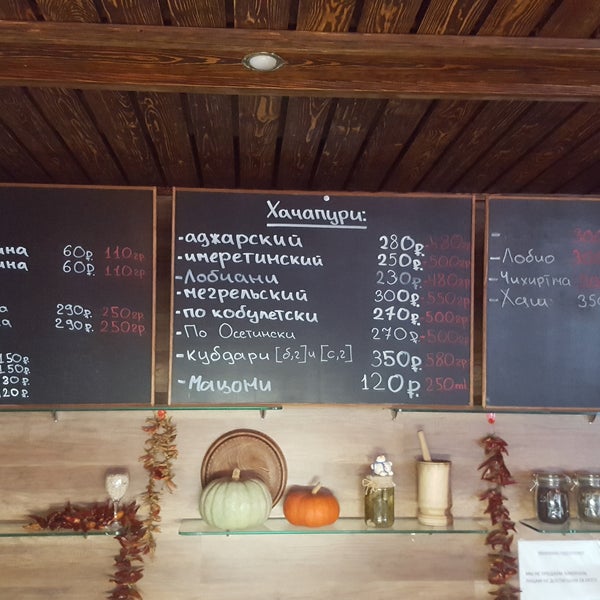 60р. 110гр
60р. 110гр
290р. 250гр
290р. 250гр
150р.
Хачапури:
- аджарский 280р. - 580гр
- имеретинский 250р. - 500гр
- Лобиани 230р. - 480гр
- мегрельский 300р. - 550гр
- по кобулетски 270р. - 500гр
- По Осетински 270р - 500гр
- кубдари [б,г] и [с,г] 350р. 580гр
- Мацони 120р. - 250ml
- Лобио
- Чихиртма
- Хаш 350